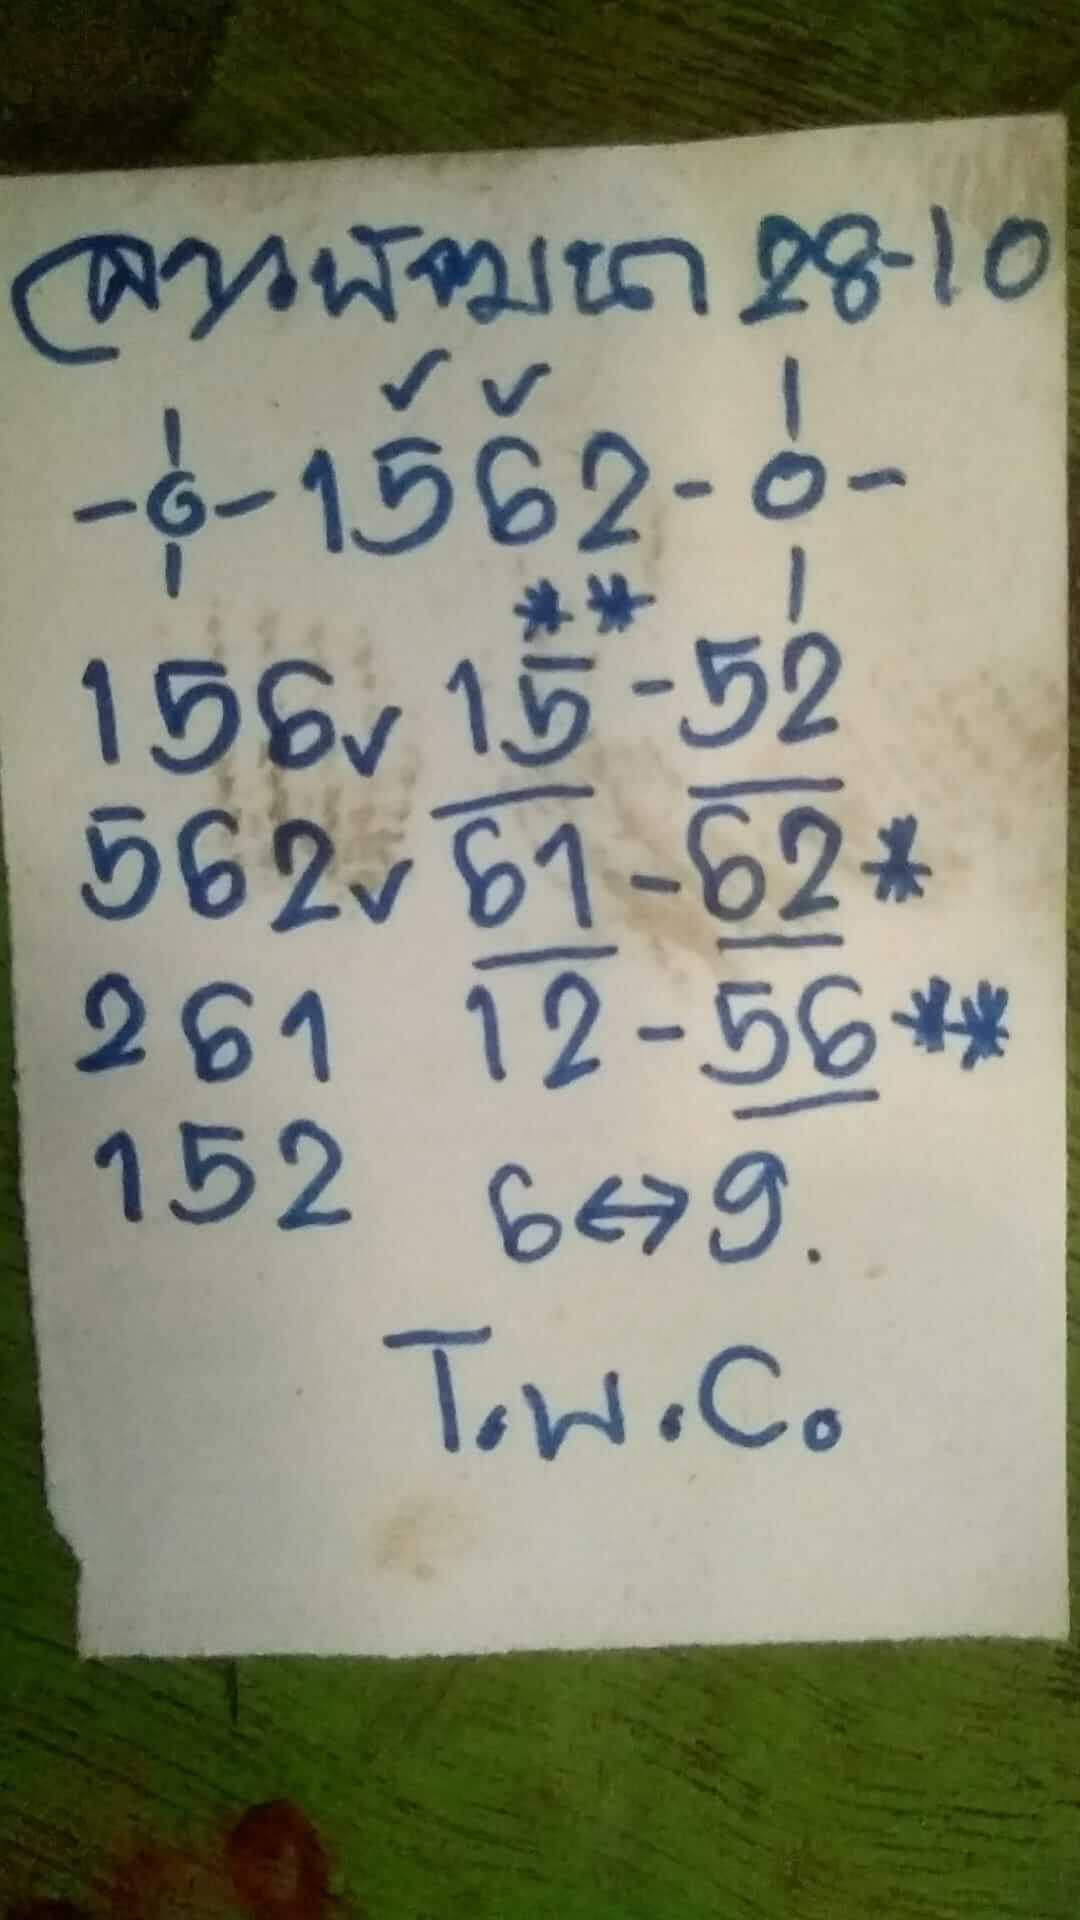 ลาวพัฒนา 28-10
1562
156 15 - 52
562 61 - 62 *
261 12 - 56 **
152 6 ↔ 9.
T.พ.C.